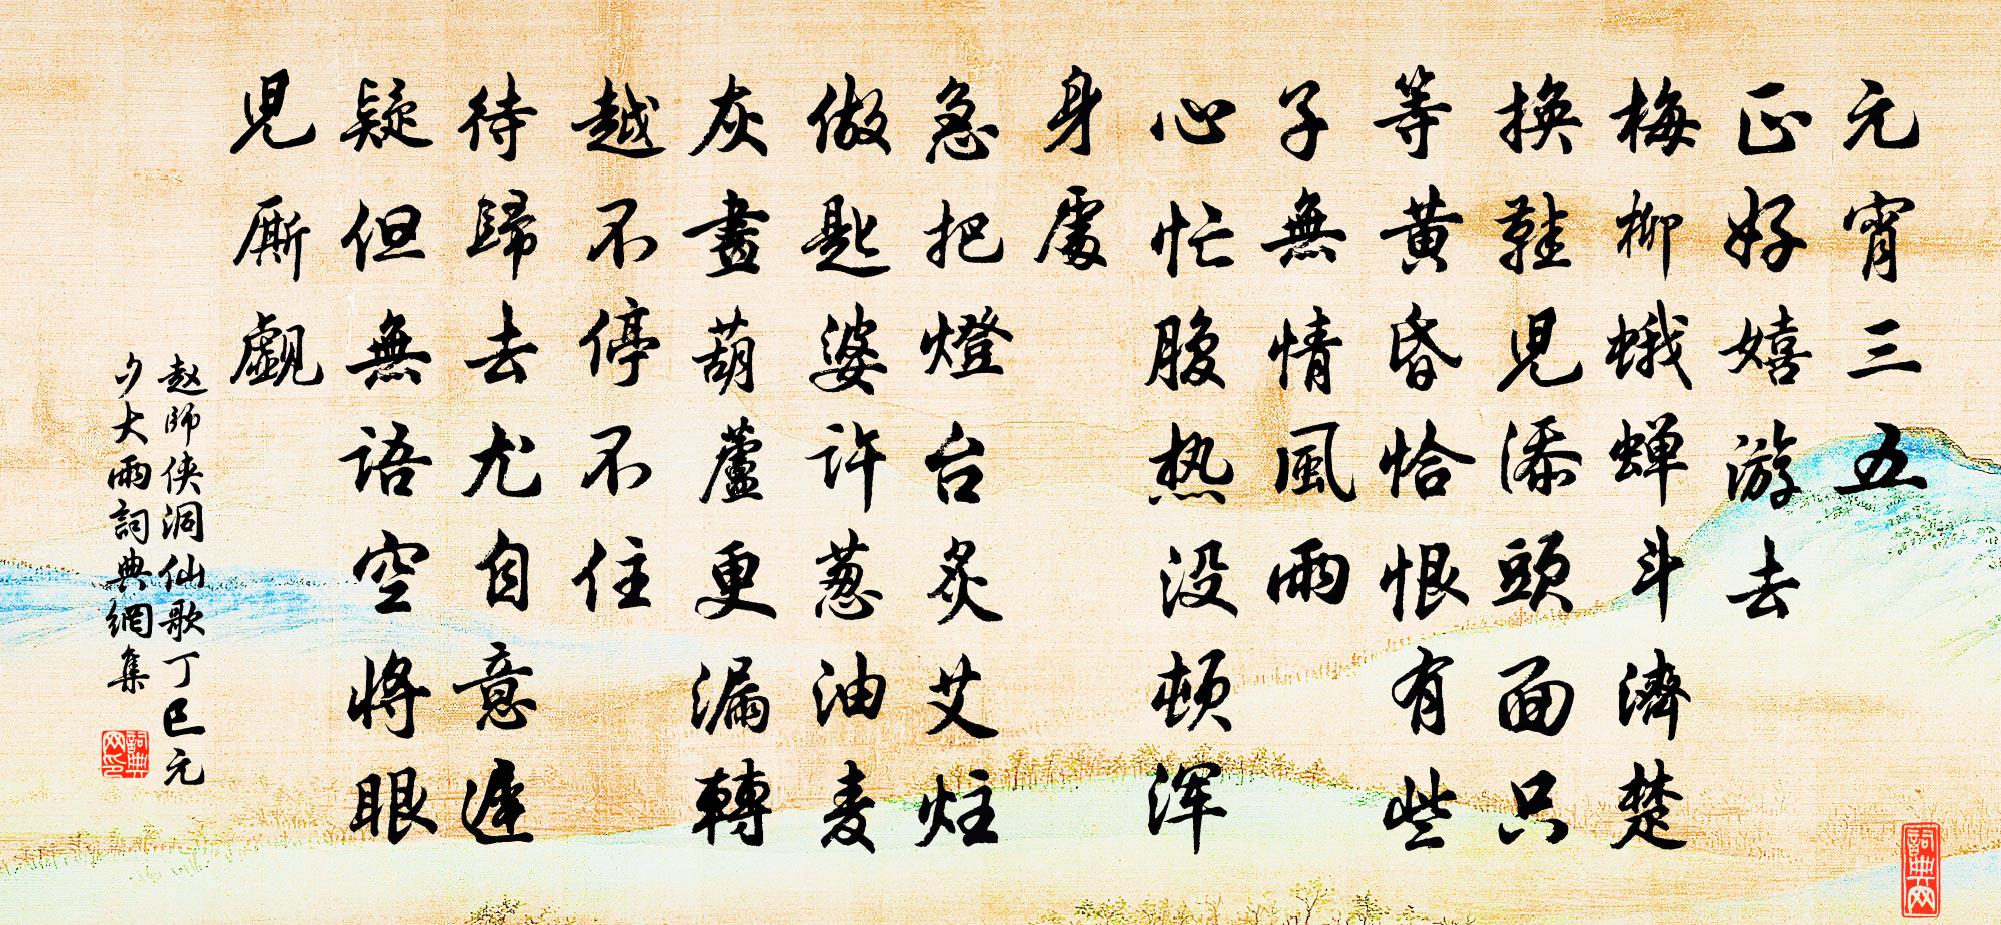 元宵三五
正好嬉游去
梅柳蛾蝉斗濟楚
換鞋児添頭面只
等黄昏恰恨有些
子無情風雨
心忙腹热没頓浑
身處
急把燈台炙艾炷
做匙婆许葱油麦
灰畫葫蘆更漏轉
越不停不住
待歸去尤自意遲
疑但無语空将眼
児厮覷
赵師侠洞仙歌丁巳元
夕大雨詞典網集
詞典网印
詞典网